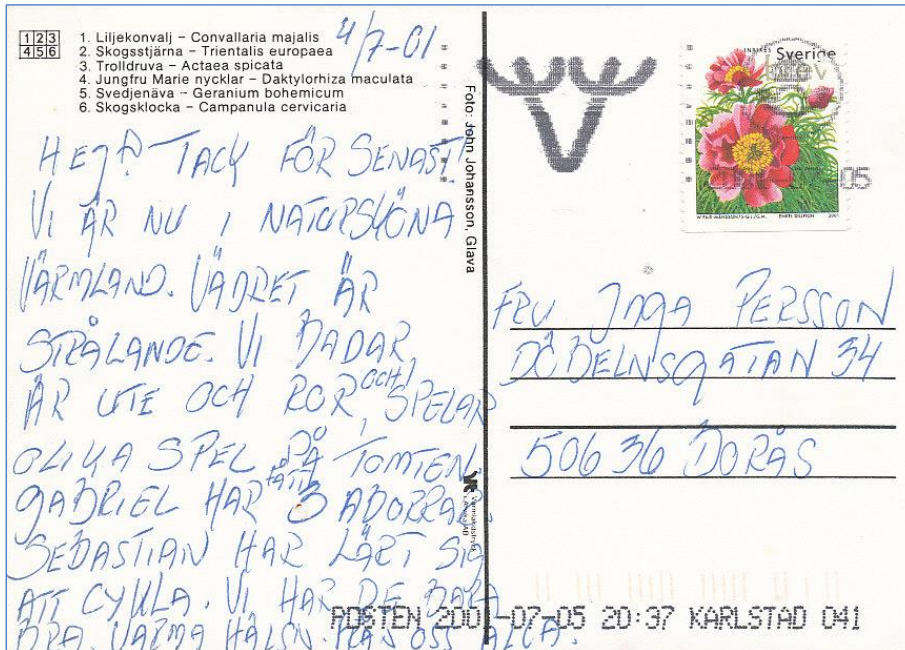 1 2 3
4 5 6
1. Liljekonvalj – Convallaria majalis
2. Skogsstjärna – Trientalis europaea
3. Trolldruva – Actaea spicata
4. Jungfru Marie nycklar – Daktylorhiza maculata
5. Svedjenäva – Geranium bohemicum
6. Skogsklocka – Campanula cervicaria
4/7-01
HEJ! TACK FÖR SENAST!
VI ÄR NU I NATURSKÖNA
VÄRMLAND. VÄDRET ÄR
STRÅLANDE. VI BADAR,
ÄR UTE OCH ROR, OCH SPELAR
OLIKA SPEL PÅ TOMTEN.
GABRIEL HAR FÅTT 3 ABORRAR.
SEBASTIAN HAR LÄRT SIG
ATT CYKLA. VI HAR DE BARA
BRA. VARMA HÄLSN. FRÅN OSS ALLA.
Foto: John Johansson, Glava
INRIKES Sverige
brev
2001
05
FRU INGA PERSSON
DÖBELNSGATAN 34
506 36 BORÅS
POSTEN 2001-07-05 20:37 KARLSTAD 041